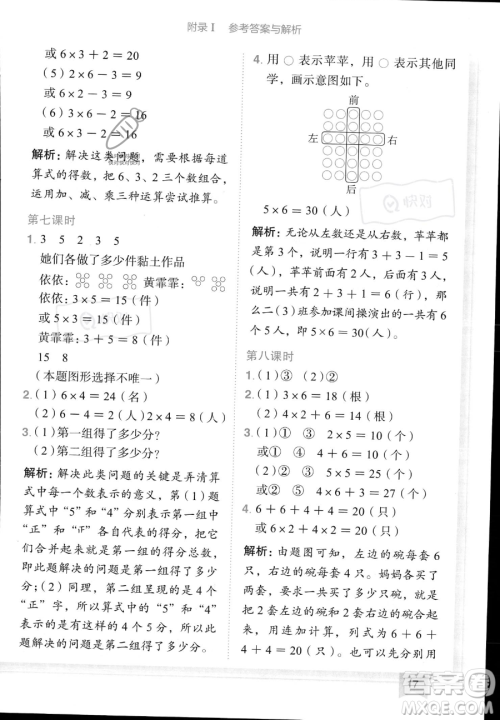 附录Ⅰ 参考答案与解析
或 6×3+2=20
(5) 2×6-3=9
或 6×2-3=9
(6) 6×3-2=16
或 3×6-2=16
解析：解决这类问题，需要根据每道算
式的得数，把 6、3、2 三个数组合，
运用加、减、乘三种运算尝试推算。
第七课时
1. 3 5 2 3 5
她们各做了多少件黏土作品
依依： 黄霏霏：
依依：3×5=15（件）
或 5×3=15（件）
黄霏霏：3+5=8（件）
15 8
（本题图形选择不唯一）
2.(1) 6×4=24（名）
(2) 2×4=8（人）或 4×2=8（人）
3.(1) 第一组得了多少分？
(2) 第二组得了多少分？
解析：解决此类问题的关键是弄清算
式中每一个数表示的意思。(1)
算式中的“5”和“4”分别表示第一组中
“正”和“正”字各自代表的得分，把
它们合并起来就是第一组的得分总数，
即解决的问题是第一组得了多少分。
(2) 同理，第二组得了 5 个
“正”字，所以算式中的“5”和“4”
表示的意思是 5 个 4 分，所以
解决的问题是第二组得了多少分。
4. 用 表示苹苹，用 表示其他同
学，画示意图如下。
前
左 右
后
5×6=30（人）
解析：无论从左数还是从右数，苹苹都
是第 3 个，说明一行有 3+3-1=5
（人）。苹苹前面有 3 人，后面有 2 人，
说明一共有 2+3+1=6（行），那
么二（3）班参加课间操演出的一共有
5×6=30（人）。
第八课时
1.(1) ③ (2) ④
2.(1) 3×6=18（根）
(2) 4×2+2=10（根）
3.(1) ① ③ 2×5=10（个）
或 ① ② 4+6=10（个）
(2) ② ③ 5×6=30（个）
4. 5×6+4=34（只）
或 6×6-2=34（只）
解析：由题图可知，左边的碗每套 6
只，右边的碗每套 4 只。妈妈买了
5 套左边的碗和 1 套右边的碗，可先
求出 5 套左边的碗的数量，再加上 1
套右边的碗的数量，列式为 5×6+
4=34（只）；也可以把右边的碗每